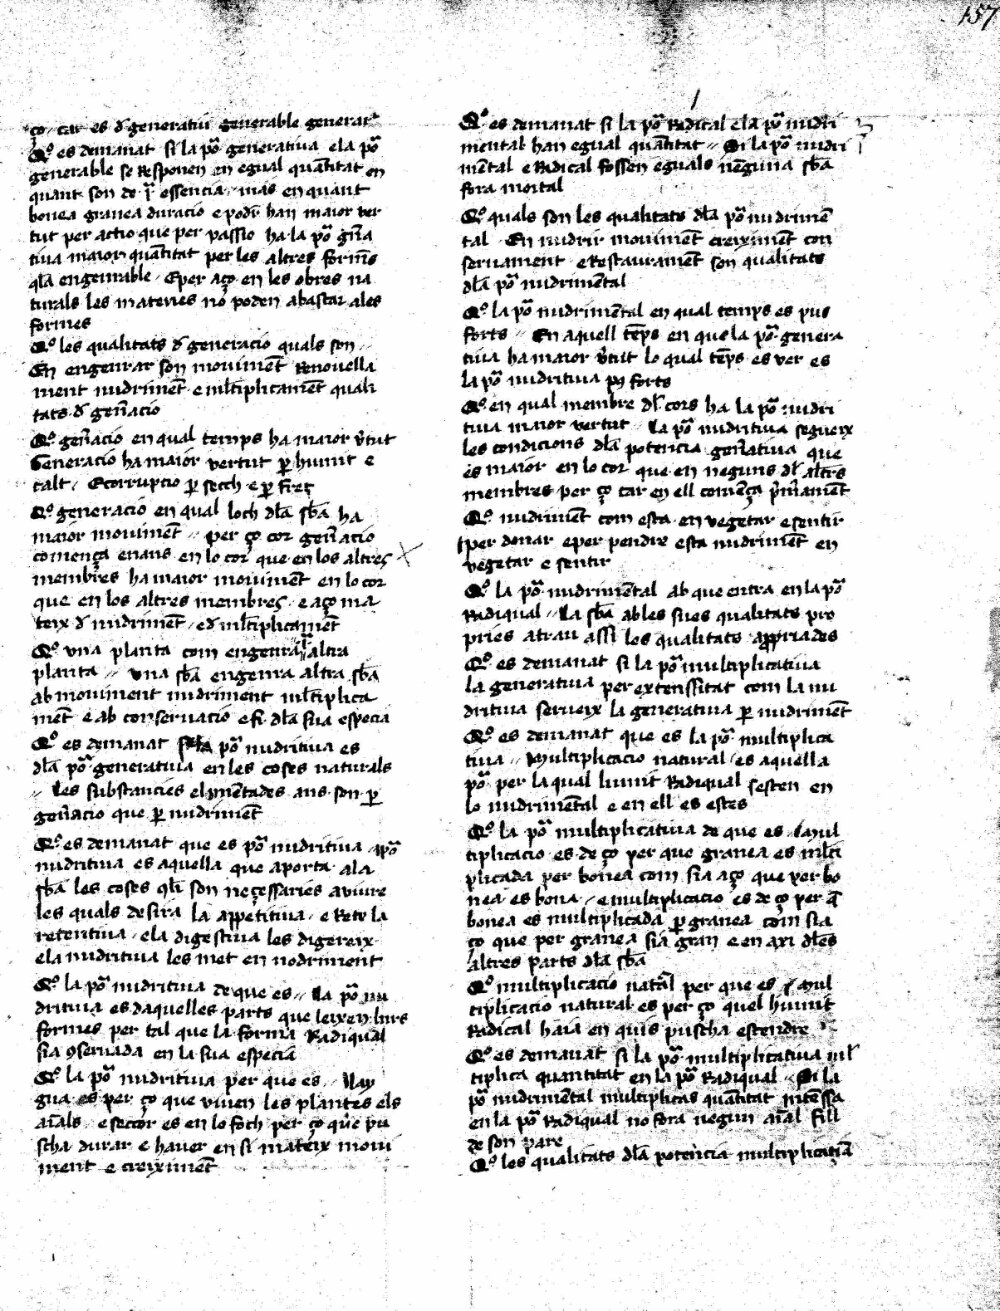 157
ço · car es d̄ generatiu generable generar
Q̊ es demanat si la põ generatiua e la põ
generable se responen en egual quãtitat en
quant son de .j. essencia · mas en quant
bonea granea duracio e podr̄ han maior ver
tut per actio que per passio ha la põ gña
tiua maior quãtitat per les altres formes
q̃la engenrable · E per aço en les obres na
turals les materies no poden abastar a les
formes
Q̊ les qualitats d̄ generacio quals son //
En engenrar son mouimẽt renouella
ment nudrimẽt e ml̃tiplicamẽt quali
tats d̄ geñacio
Q̊ geñacio en qual temps ha maior v̾tut
Generacio ha maior vertut ꝑ humit e
calt · E corrupcio ꝑ secch e ꝑ fret
Q̊ generacio en qual loch dl̃a sb̃a ha
maior mouimẽt // per ço cor geñacio
comença enans en lo cor que en los altres
membres ha maior mouimẽt en lo cor
que en los altres membres · e aço ma
teix d̄ nudrimẽt · e d̄ ml̃tiplicamẽt
Q̊ vna planta com engenra altra
planta // vna sb̃a engenra altra sb̃a
ab mouiment nudriment ml̃tiplica
mẽt e ab conseruacio e fi dl̃a sua especia
Q̊ es demanat si la põ nudritiua es
dl̃a põ generatiua en les coses naturals
// les substancies elemẽtades ans son ꝑ
geñacio que ꝑ nudrimẽt
Q̊ es demanat que es põ nudritiua · põ
nudritiua es aquella que aporta a la
sb̃a les coses qui li son neçessaries a viure
les quals desira la appetitiua · e rete la
retentiua · e la digestiua les digereix
e la nudritiua les met en nodriment
Q̊ la põ nudritiua de que es // La põ nu
dritiua es daquelles parts que leixen lurs
formes per tal que la forma radiqual
sia ꝯseruada en la sua especia
Q̊ la põ nudritiua per que es //
gua es per ço que viuen les plantes els
añals · e seccor es en lo foch per ço que pu
scha durar e hauer en si mateix moui
ment e creximẽt
Q̊ es demanat si la põ radical e la põ nudri
mental han egual quãtitat // Si la põ nudri
mẽtal e radical fossen eguals neguna sb̃a
fora mortal
Q̊ quals son les qualitats dl̃a põ nudrimẽ
tal · En nudrir mouimẽt creiximẽt con
seruament e restauramẽt son qualitats
dl̃a põ nudrimẽtal
Q̊ la põ nudrimẽtal en qual temps es pus
forts // En aquell tẽps en que la põ genera
tiua ha maior v̾tut lo qual tẽps es ver es
la põ nudritiua pꝰ forts
Q̊ en qual membre dl̃ cors ha la põ nudri
tiua maior vertut // La põ nudritiua segueix
les condicions dl̃a potencia geñatiua que
es maior en lo cor que en neguns dl̃s altres
membres · per ço car en ell comẽça p̾merament
Q̊ nudrimẽt com esta en vegetar e sentir
per donar e per pendre esta nudrimẽt en
vegetar e sentir
Q̊ la põ nudrimẽtal ab que entra en la põ
radiqual // La sb̃a ab les sues qualitats pro
pries atrau assi les qualitats appropriades
Q̊ es demanat si la põ multiplicatiua
la generatiua per extenssitat com la nu
dritiua serueix la generatiua ꝑ nudrimẽt
Q̊ es demanat que es la põ multiplica
tiua // Multiplicacio natural es aquella
põ per la qual humit radiqual sesten en
lo nudrimẽtal e en ell es estes
Q̊ la põ multiplicatiua de que es // Mul
tiplicacio es de ço per que granea es ml̃ti
plicada per bonea com sia aço que per bo
nea es bona // e multiplicacio es de ço per q̃
bonea es multiplicada ꝑ granea com sia
ço que per granea sia gran e en axi dl̃es
altres parts dl̃a sb̃a
Q̊ multiplicacio natr̃al per que es // Mul
tiplicacio natural es per ço quel humit
radical haia en quis puscha estendre
Q̊ es demanat si la põ multiplicatiua ml̃
tiplica quantitat en la põ radiqual // Si la
põ nudrimental multiplicas quãtitat intẽssa
en la põ radiqual no fora negun añal fill
de son pare
Q̊ les qualitats dl̃a potencia multiplicatiua